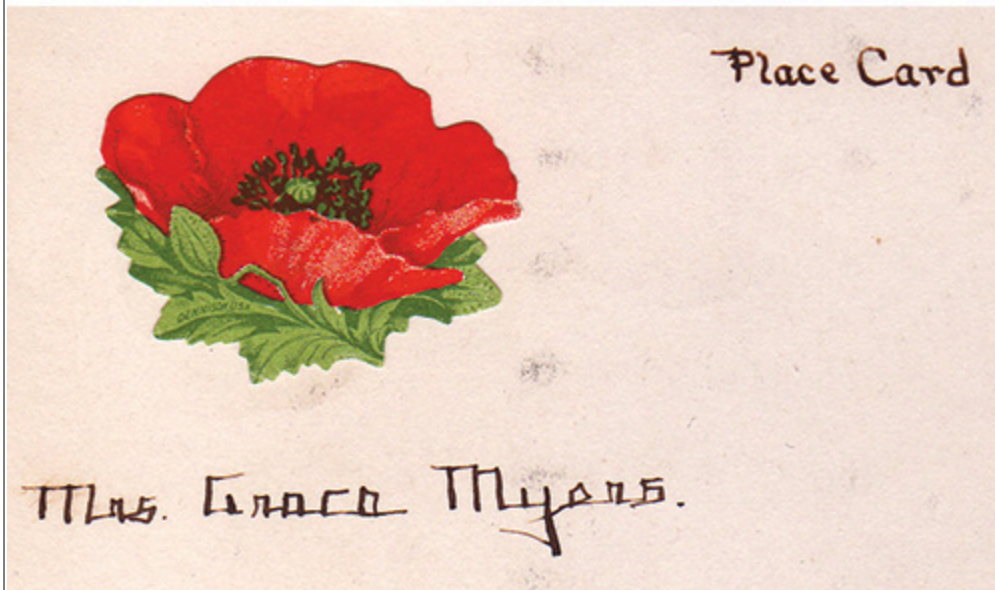 Place Card
DENNISON USA
Mrs. Grace Myers.